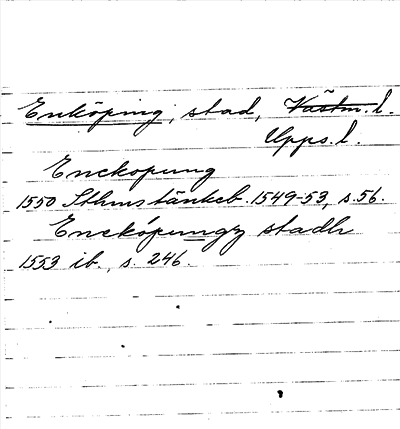 Enköping, stad, Västm. l.
Upps. l.
Enckopung
1550 Sthms tänkeb. 1549-53, s. 56.
Encköpungz stadh
1553 ib., s. 246.